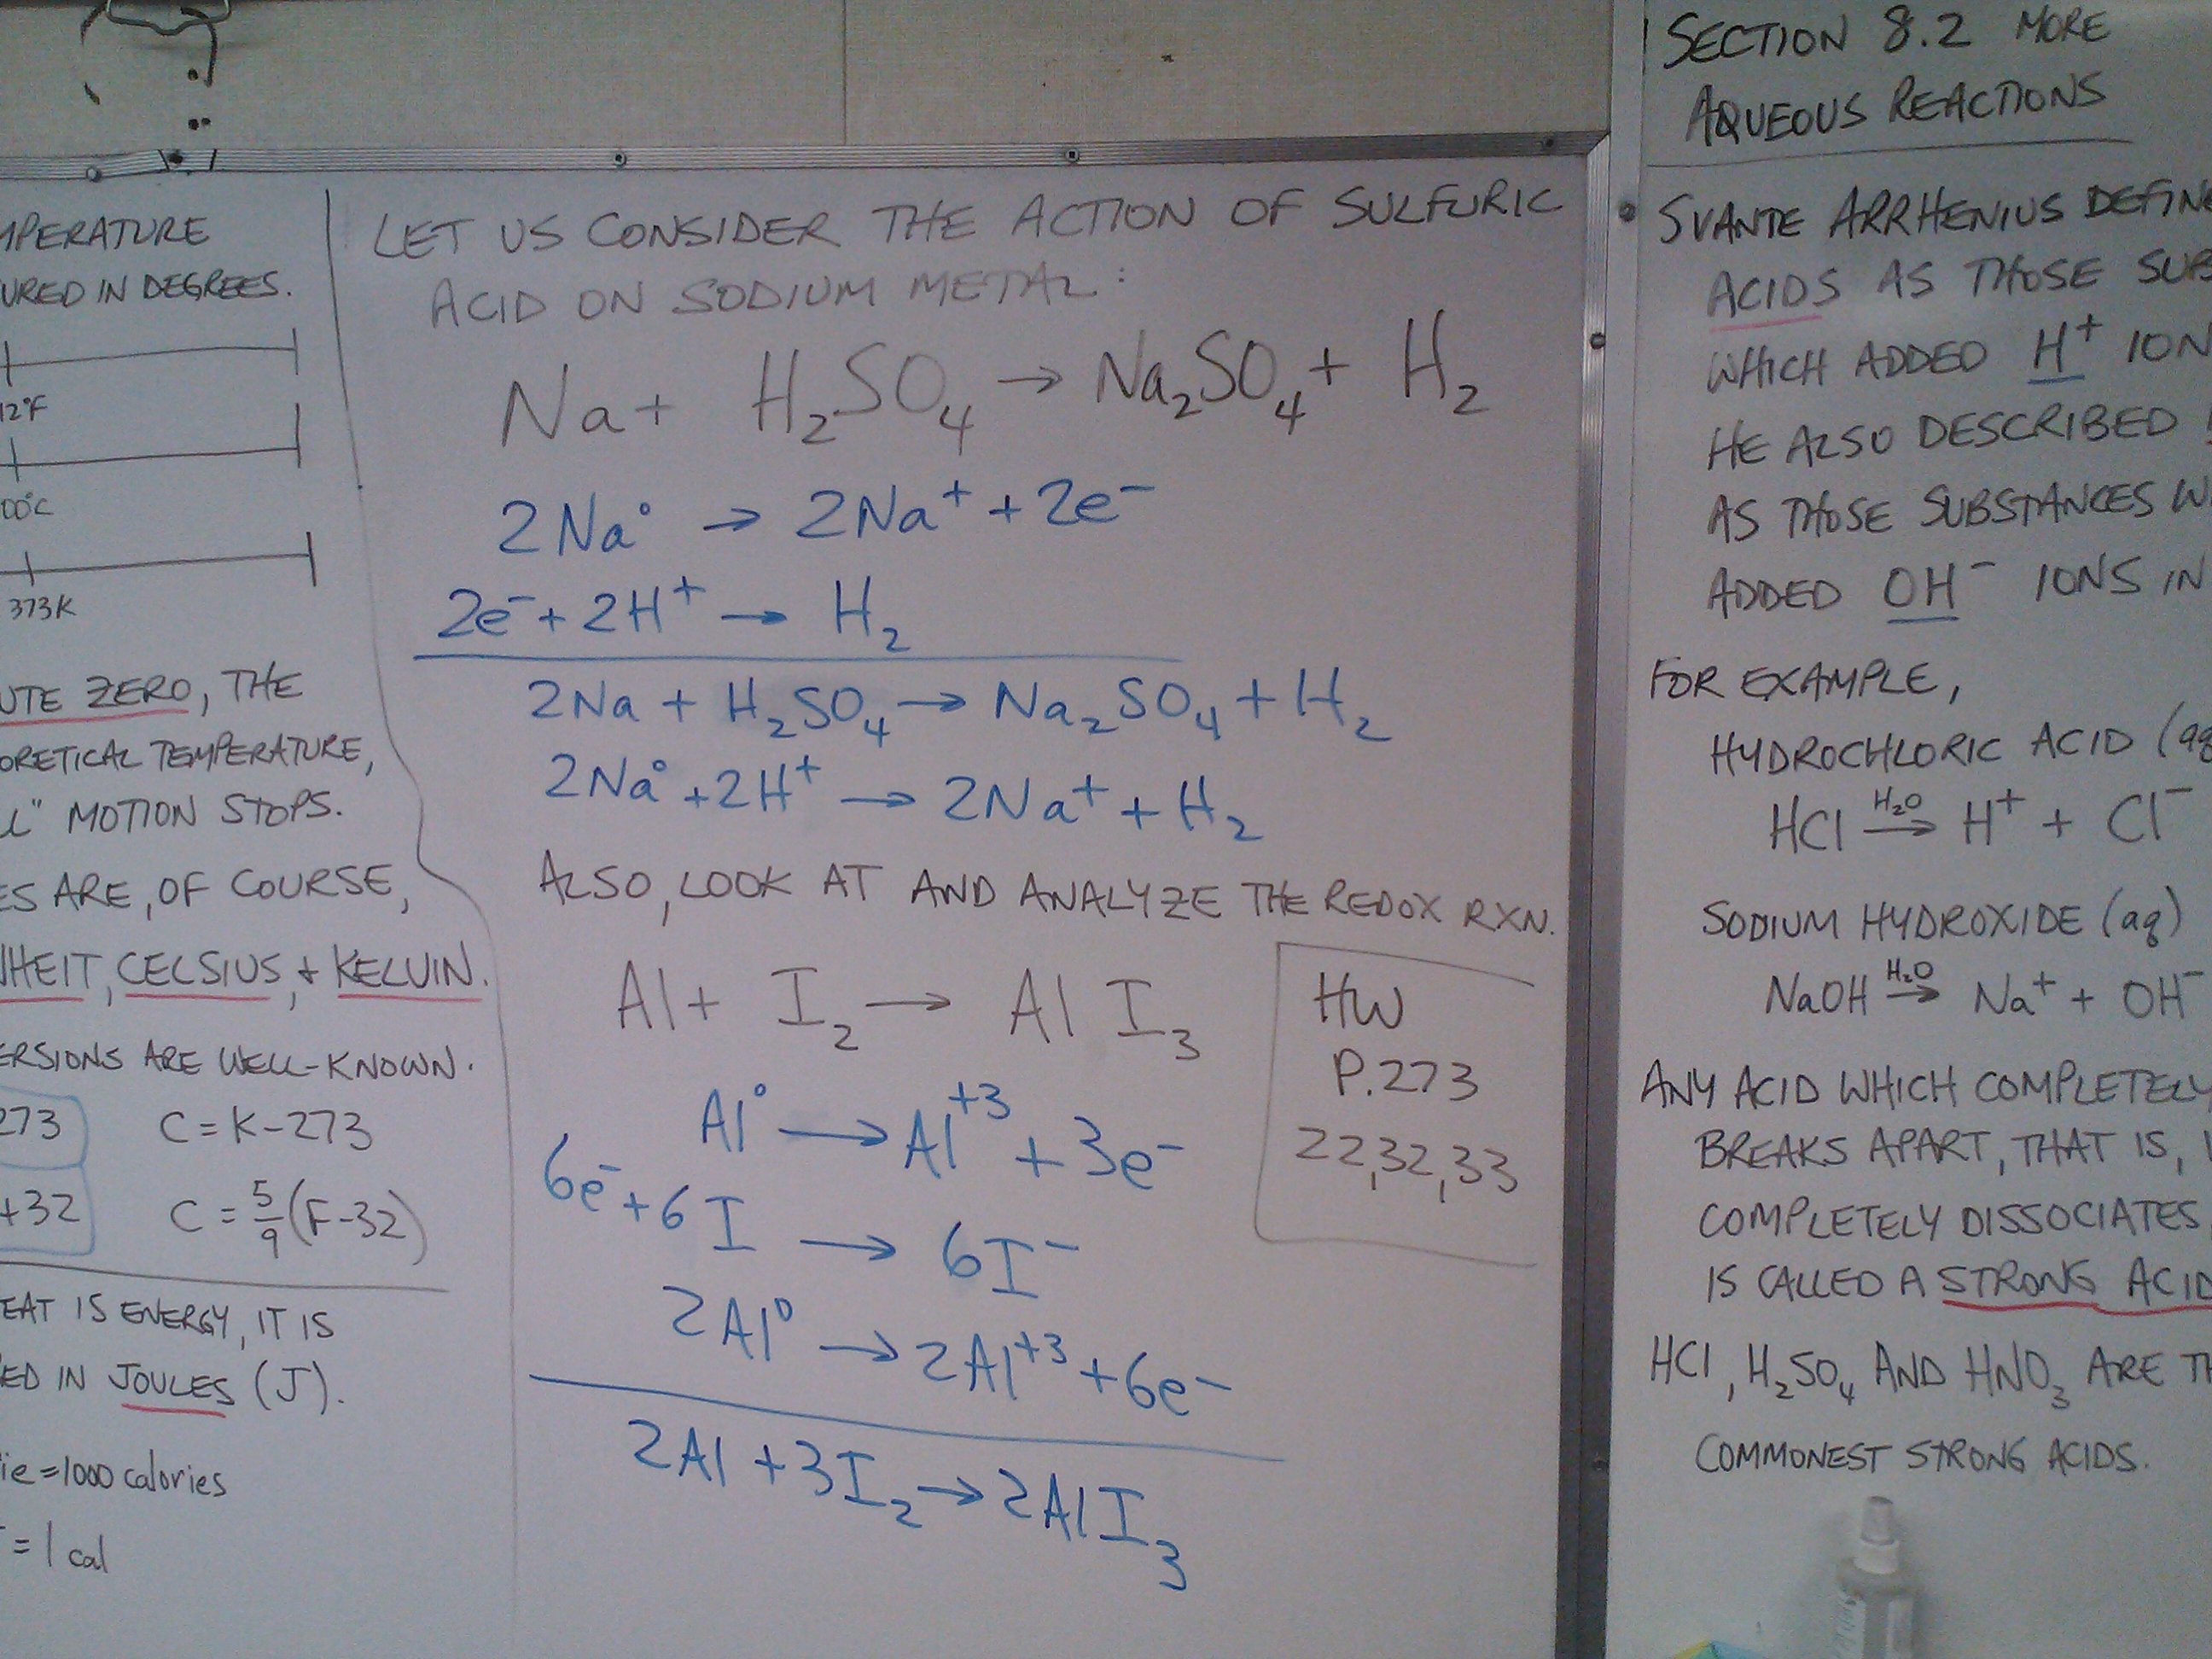 MPERATURE
URED IN DEGREES.
12°F
00°C
373K
UTE ZERO, THE
ORETICAL TEMPERATURE,
LL" MOTION STOPS.
ES ARE, OF COURSE,
NHEIT, CELSIUS, & KELVIN.
ERSIONS ARE WELL-KNOWN.
273 C = K-273
+32 C = 5/9 (F-32)
EAT IS ENERGY, IT IS
ED IN JOULES (J).
ie = 1000 calories
= 1 cal
LET US CONSIDER THE ACTION OF SULFURIC
ACID ON SODIUM METAL:
Na + H₂SO₄ → Na₂SO₄ + H₂
2Na° → 2Na⁺ + 2e⁻
2e⁻ + 2H⁺ → H₂
2Na + H₂SO₄ → Na₂SO₄ + H₂
2Na° + 2H⁺ → 2Na⁺ + H₂
ALSO, LOOK AT AND ANALYZE THE REDOX RXN.
Al + I₂ → Al I₃
Al° → Al⁺³ + 3e⁻
6e⁻ + 6I → 6I⁻
2Al⁰ → 2Al⁺³ + 6e⁻
2Al + 3I₂ → 2AlI₃
HW
P.273
22,32,33
SECTION 8.2 MORE
AQUEOUS REACTIONS
SVANTE ARRHENIUS DEFINE
ACIDS AS THOSE SUB
WHICH ADDED H⁺ ION
HE ALSO DESCRIBED
AS THOSE SUBSTANCES W
ADDED OH⁻ IONS IN
FOR EXAMPLE,
HYDROCHLORIC ACID (aq
HCl H₂O → H⁺ + Cl⁻
SODIUM HYDROXIDE (aq)
NaOH H₂O → Na⁺ + OH⁻
ANY ACID WHICH COMPLETELY
BREAKS APART, THAT IS,
COMPLETELY DISSOCIATES,
IS CALLED A STRONG ACID
HCl, H₂SO₄ AND HNO₃ ARE TH
COMMONEST STRONG ACIDS.